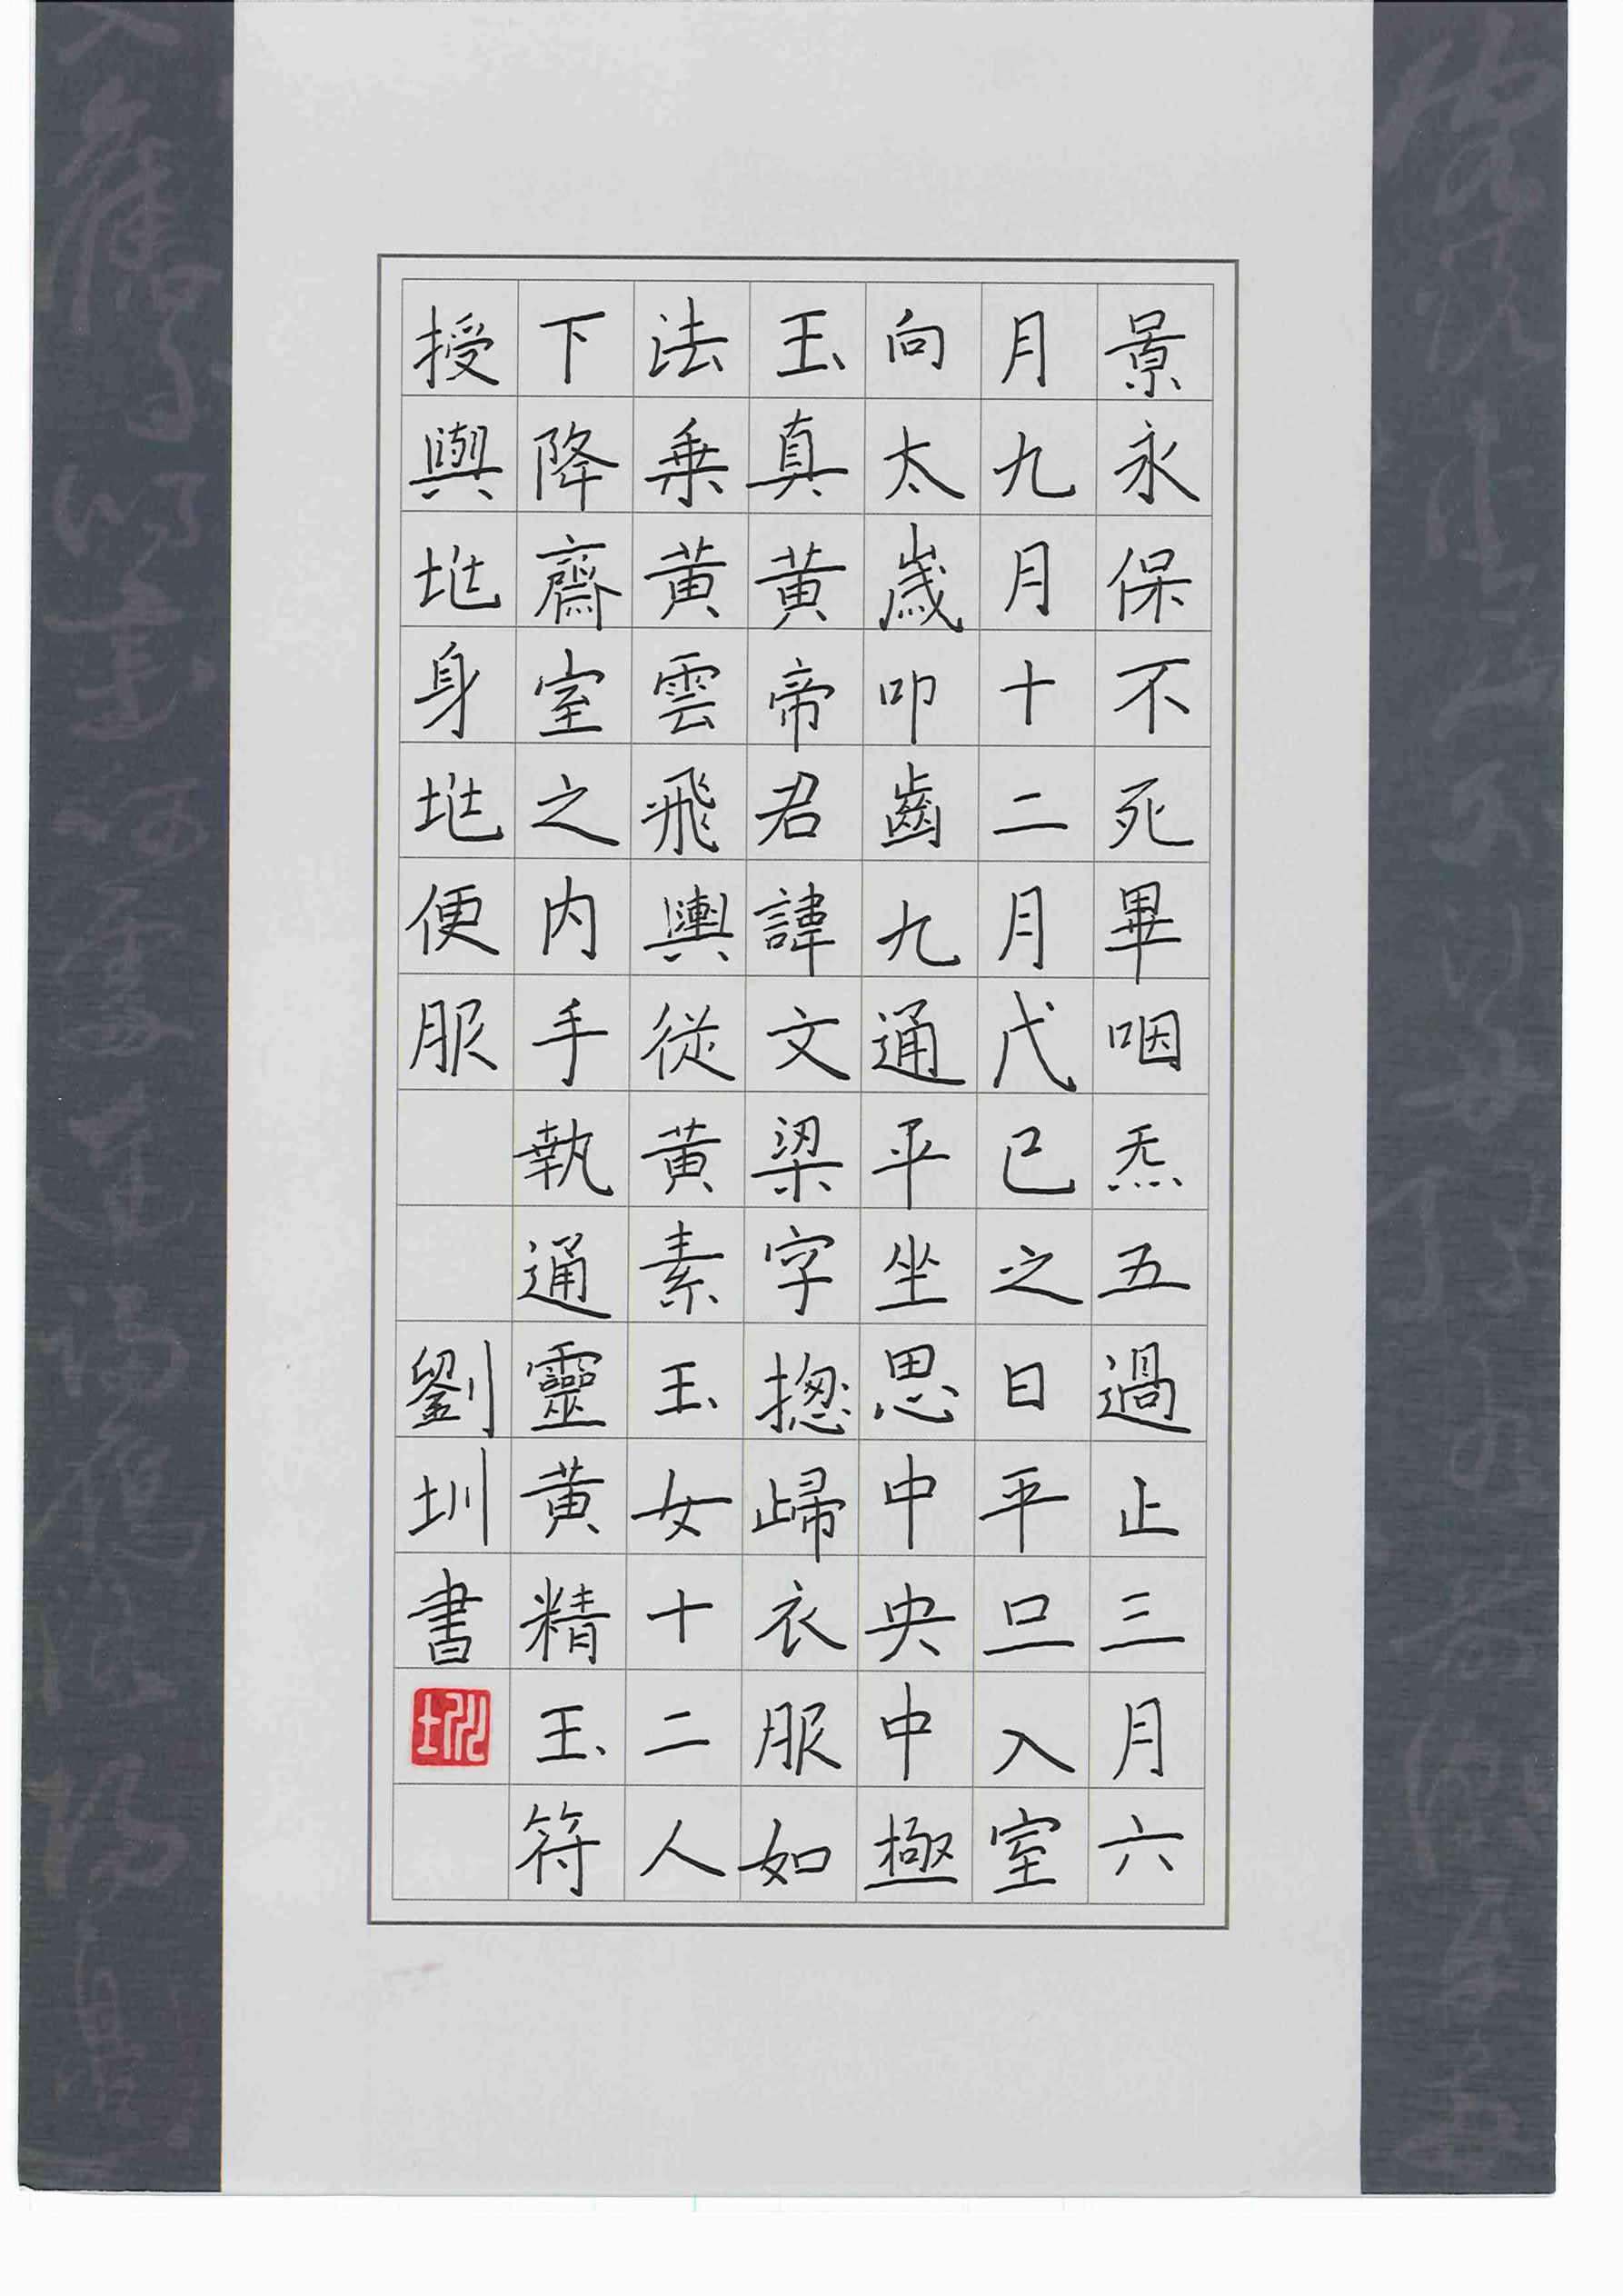 景永保不死畢咽炁五過止三月六
月九月十二月戊己之日平旦入室
向太歲叩齒九通平坐思中央中極
玉真黃帝君諱文梁字揔歸衣服如
法乘黃雲飛輿從黃素玉女十二人
下降齋室之內手執通靈黃精玉符
授與兆身兆便服
劉圳書